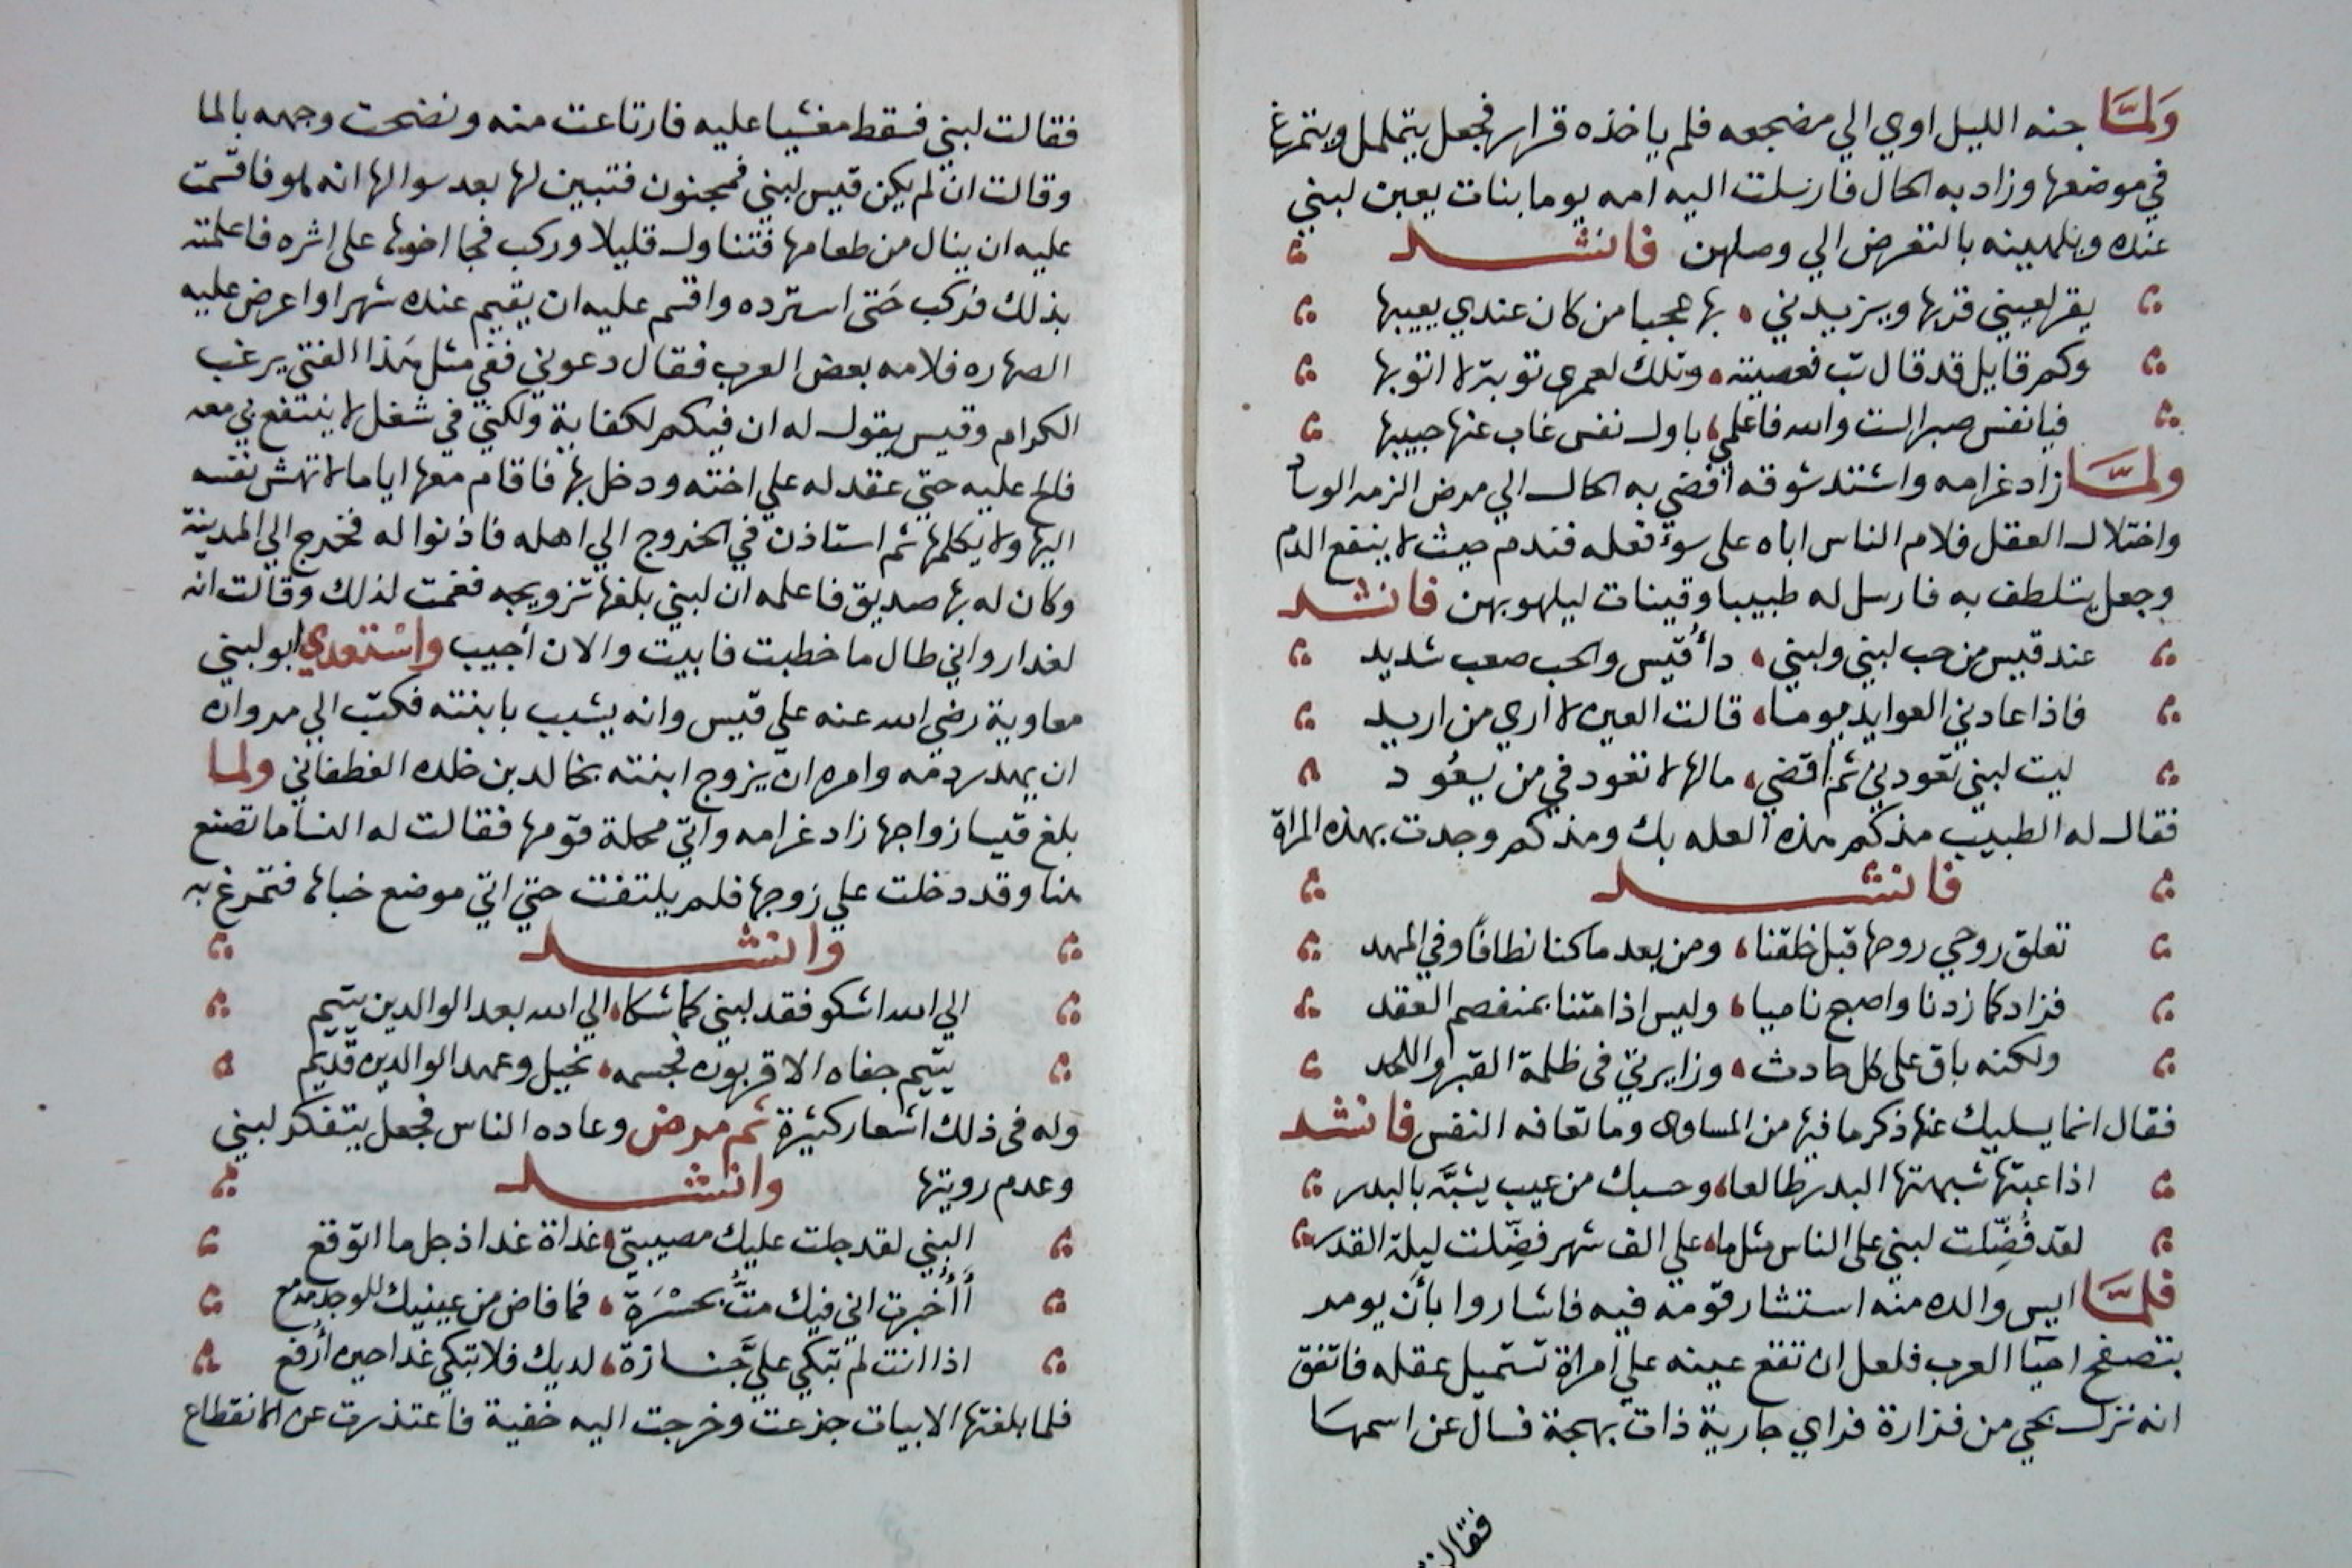 ولما جنه الليل اوي الي مضجعه فلم ياخذه قرار فجعل يتململ ويتمرغ
في موضعها وزاد به الحال فارسلت اليه امه يوما بنات يعبن لبني
عنده ويلهينه بالتعرض الي وصلهن فانشد
يقر لعيني قربها ويزيدني بها عجبا من كان عندي يعيبها
وكم قايل قد قال تب فعصيته وتلك لعمري توبة لا اتوبها
فيا نفس صبرا لست والله فاعلمي باول نفس غاب عنها حبيبها
ولما زاد غرامه واشتد شوقه افضي به الحال الي مرض الزمه الوساد
واختلال العقل فلام الناس اباه علي سوء فعله فندم حيث لا ينفع الندم
وجعل يتلطف به فارسل له طبيبا وقينات ليلهو بهن فانشد
عند قيس من حب لبني ولبني دأ قيس والحب صعب شديد
فاذا عادني العوايد يوما قالت العين لا اري من اريد
ليت لبني تعودني ثم اقضي مالها لا تعود في من يعود
فقال له الطبيب مذكم هذه العله بك ومذكم وجدت بهذه المراة
فانشد
تعلق روحي روحها قبل خلقنا ومن بعد ما كنا نطافا وفي المهد
فزاد كما زدنا واصبح ناميا وليس اذا متنا بمنفصم العقد
ولكنه باق علي كل حادث وزايرتي في ظلمة القبر واللحد
فقال انما يسليك عنها ذكر ما فيها من المساوي وما تعافه النفس فانشد
اذا عبتها شبهتها البدر طالعا وحسبك من عيب يشبَّه بالبدر
لقد فُضِّلت لبني علي الناس مثل ما علي الف شهر فضِّلت ليلة القدر
فلما ايس والده منه استشار قومه فيه فاشاروا بأن يومر
بتصفح احيآ العرب فلعل ان تقع عينه علي امراة تستميل عقله فاتفق
انه نزل بحي من فزارة فراي جارية ذات بهجة فسال عن اسمها
فقالت
فقالت لبني فسقط مغشيا عليه فارتاعت منه ونضحت وجهه بالما
وقالت ان لم يكن قيس لبني فمجنون فتبين لها بعد سوالها انه هو فاقسمت
عليه ان ينال من طعامها فتناول قليلا وركب فجا اخوها علي اثره فاعلمته
بذلك فركب حتي استرده واقسم عليه ان يقيم عنده شهرا واعرض عليه
الصهاره فلامه بعض العرب فقال دعوني ففي مثل هذا الفتي يرغب
الكرام وقيس يقول له ان فيكم لكفاية ولكني في شغل لا ينتفع بي معه
فالح عليه حتي عقد له علي اخته ودخل بها فاقام معها اياما لا تهش نفسه
اليها ولا يكلمها ثم استاذن في الخروج الي اهله فاذنوا له فخرج الي المدينة
وكان له بها صديق فاعلمه ان لبني بلغها تزويجه فغمت لذلك وقالت انه
لغدار واني طال ما خطبت فابيت والان أجيب واستعدي ابو لبني
معاوية رضي الله عنه علي قيس وانه يشبب بابنته فكتب الي مروان
ان يهدر دمه وامره ان يزوج ابنته بخالد بن خلده الغطفاني ولما
بلغ قيسا زواجها زاد غرامه واتي محلة قومها فقالت له النسا ما تصنع
هنا وقد دخلت علي زوجها فلم يلتفت حتي اتي موضع خباها فتمرغ به
وانشد
الي الله اشكو فقد لبني كما شكا الي الله بعد الوالدين يتيم
يتيم جفاه الاقربون فجسمه نحيل وعهد الوالدين قديم
وله في ذلك اشعار كثيرة ثم مرض وعاده الناس فجعل يتفكر لبني
وعدم رويتها وانشد
البني لقد جلت عليك مصيبتي غداة غد اذ حل ما اتوقع
أأُخبرت اني فيك متُّ بحسْرَة فما فاض من عينيك للوجد مدمع
اذا انت لم تبكي عليَّ جنازة لديك فلا تبكي غدا حين أرفع
فلما بلغتها الابيات جزعت وخرجت اليه خفية فاعتذرت عن الانقطاع